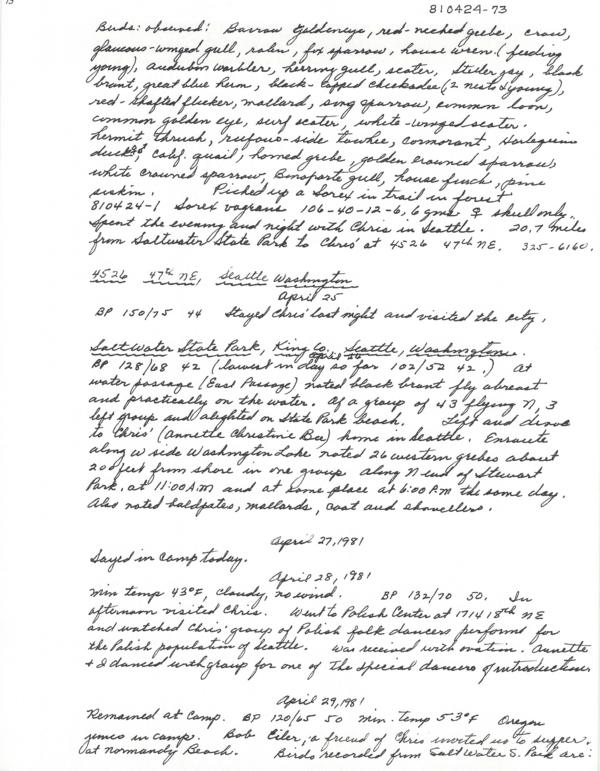 810424-73
Birds: observed: Barrow Goldeneye, red-necked grebe, crow,
glaucous-winged gull, robin, fox sparrow, house wren (feeding
young), Audubon warbler, herring gull, scoter, Steller jay, black
brant, great blue heron, black-capped chickadee (2 nests & young),
red-shafted flicker, mallard, song sparrow, common loon,
common golden eye, surf scoter, white-winged scoter.
hermit thrush, rufous-side towhee, cormorant, Harlequin
duck, Calif. quail, horned grebe, golden crowned sparrow,
white crowned sparrow, Bonaparte gull, house finch, pine
siskin. Picked up a Sorex in trail in forest
810424-1 Sorex vagrans 106-40-12-6, 6 gms ♀ skull only.
Spent the evening and night with Chris in Seattle. 20.7 miles
from Saltwater State Park to Chris' at 4526 47th NE. 325-6160.
4526 47th NE, Seattle Washington
April 25
BP 150/75 44 Stayed Chris' last night and visited the city.
Salt Water State Park, King Co. Seattle, Washington.
April 26
BP 128/68 42 (lowest in day so far 102/52 42.) At
water passage (East Passage) noted black brant fly abreast
and practically on the water. Of a group of 43 flying N, 3
left group and alighted on State Park beach. Left and drove
to Chris' (Annette Christine Bee) home in Seattle. Enroute
along W side Washington Lake noted 26 western grebes about
200 feet from shore in one group along N end of Stewart
Park, at 11:00 AM and at same place at 6:00 P.M the same day.
Also noted baldpates, mallards, coot and shovellers.
April 27, 1981
Sayed in camp today.
April 28, 1981
Min temp 43°F, cloudy, no wind. BP 132/70 50. In
afternoon visited Chris. Went to Polish Center at 1714 18th NE
and watched Chris' group of Polish folk dancers perform for
the Polish population of Seattle. Was received with ovation. Annette
+ I danced with group for one of the special dances of introduction
April 29, 1981
Remained at Camp. BP 120/65 50 Min. temp 53°F Oregon
juncos in camp. Bob Eiler, a friend of Chris invited us to supper
at Normandy Beach. Birds recorded from Salt Water S. Park are: